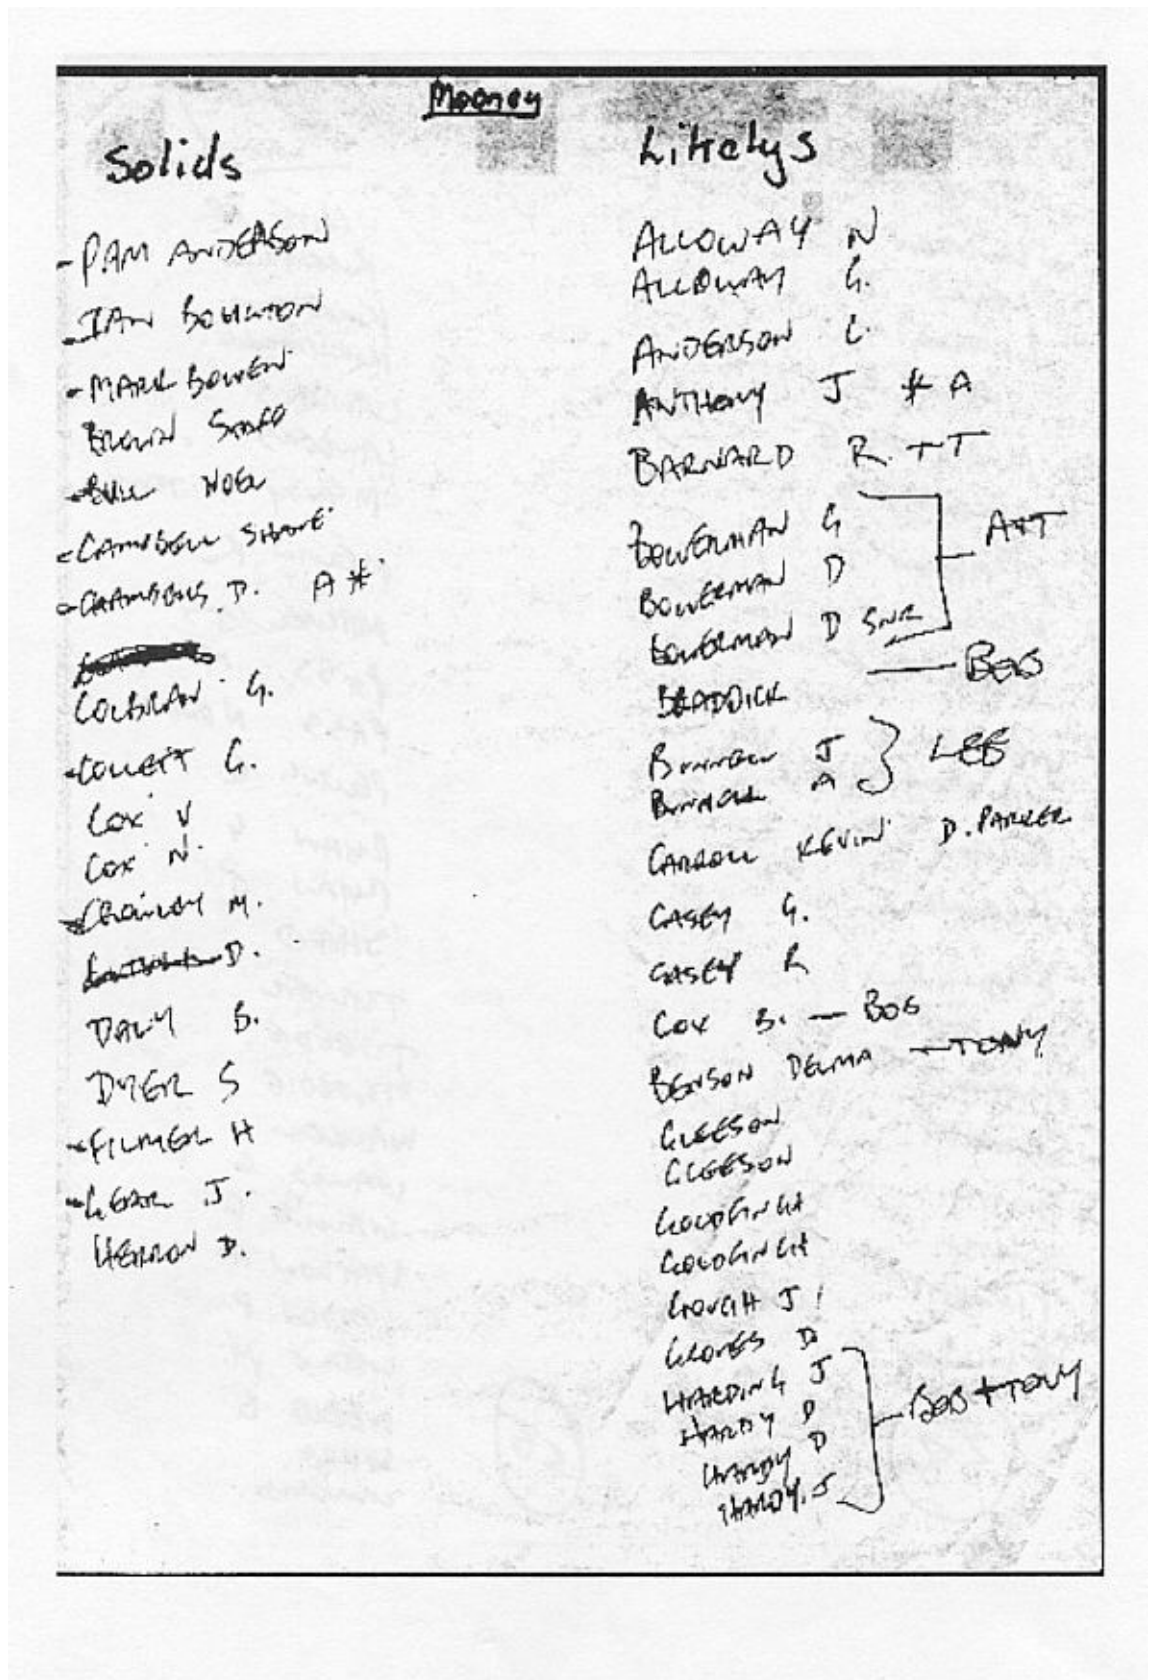 Mooney
Solids
- PAM ANDERSON
- IAN BOULTON
- MARK BOWEN
BROWN
- BULL NOEL
- CAMPBELL SHANE
- CHAMBERS. D. A *
COLBRAN G.
- COLLETT G.
COX V
COX N.
- CROWLEY M.
D.
DALY B.
DYER S
- FILMER H
- GEAR J.
HERRON D.
Likelys
ALLOWAY N
ALLOWAY G.
ANDERSON L.
ANTHONY J * A
BARNARD R. - T
BOWERMAN G
BOWERMAN D
BOWERMAN D SNR
A+T
BRADDICK — BOB
BUNNELL J
BUNNELL A
LEE
CARROLL KEVIN D. PARKER
CASEY G.
CASEY R
COX B. — BOB
BENSON DELMA - TONY
GLEESON
GLEESON
GOLDFINCH
GOLDFINCH
GOUGH J
GROVES D
HARDING J
HARDY D
HARDY D
HARDY. J
BOB + TONY